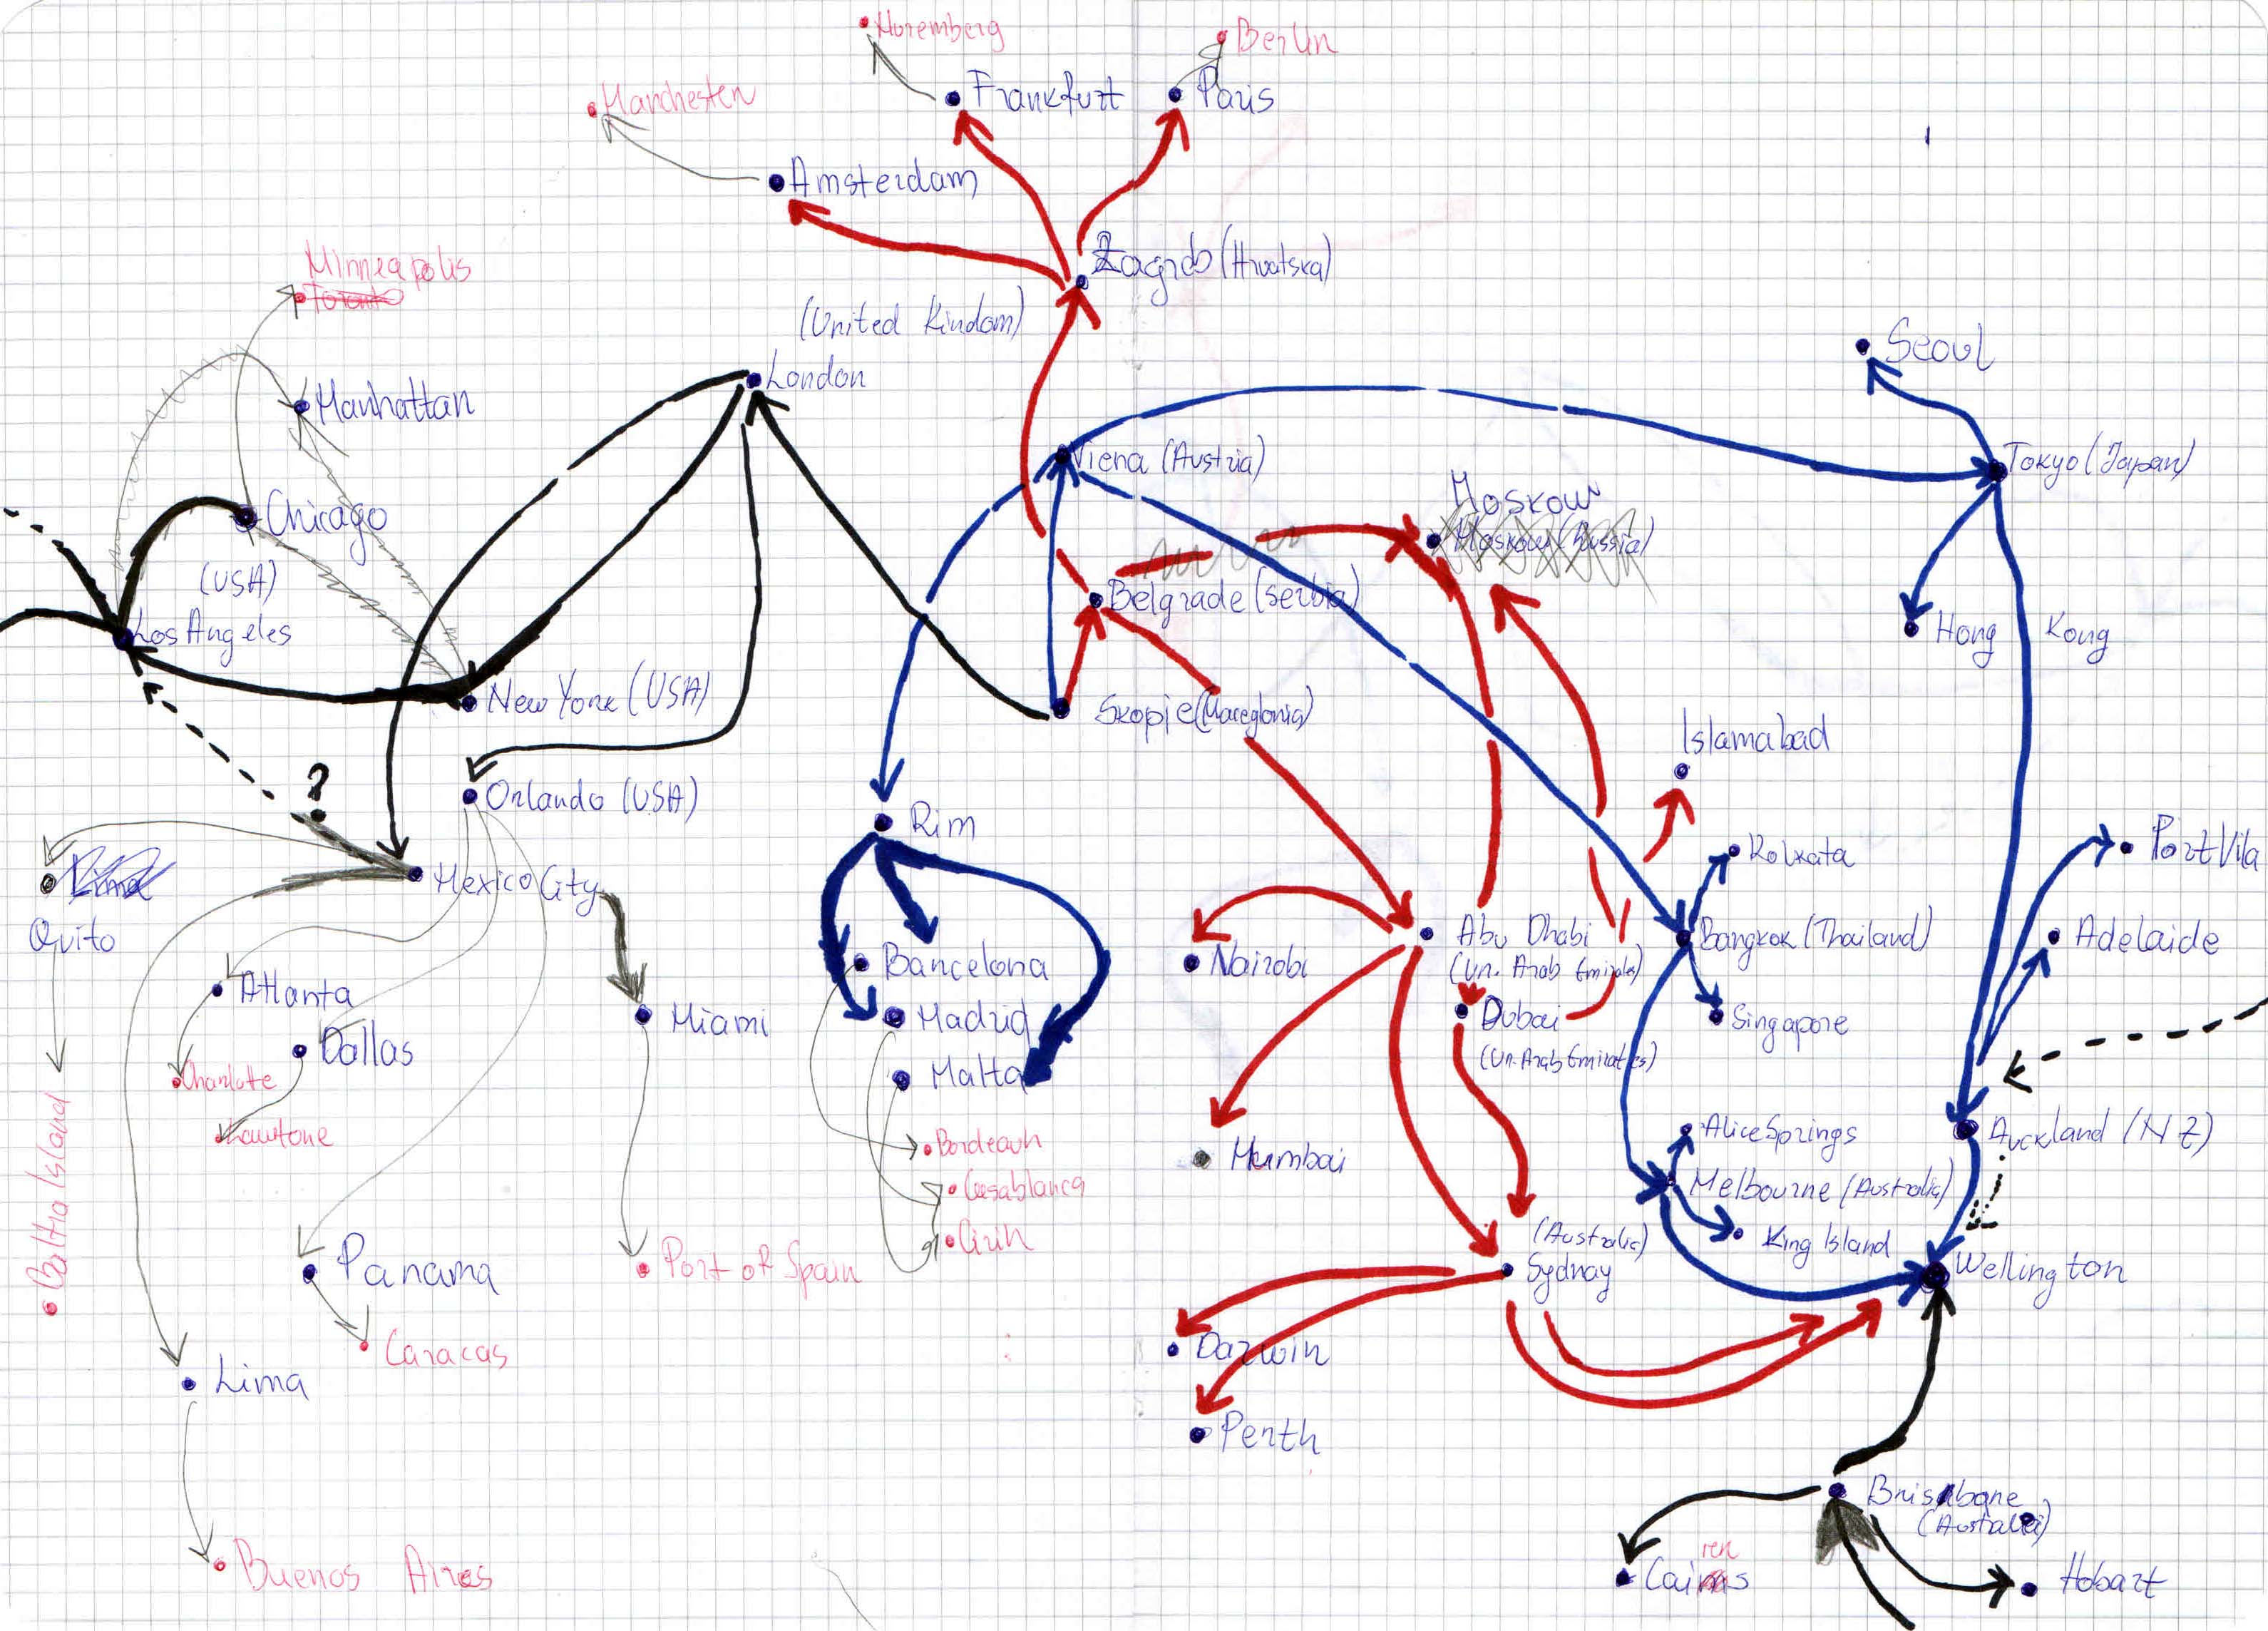 Noremberg
Berlin
Manchesten
Frankfurt
Paris
Amsterdam
Zagreb (Hrvatska)
Minneapolis
Toronto
(United Kindom)
London
Seoul
Manhattan
Viena (Austria)
Tokyo (Japan)
Moskow
Moskow (Russia)
Chicago
(USA)
Belgrade (Serbia)
Los Angeles
Hong Kong
New York (USA)
Skopje (Macedonia)
Islamabad
?
Orlando (USA)
Rim
Kolkata
Port Vila
Lima
Mexico City
Quito
Abu Dhabi
(Un. Arab Emirates)
Bangkok (Thailand)
Adelaide
Bancelona
Nairobi
Atlanta
Miami
Madrid
Dubai
(Un. Arab Emirates)
Singapore
Dallas
Malta
Charlotte
Lawtone
Baltra Island
Bordeauh
Mumbai
Alice Springs
Auckland (NZ)
Casablanca
Melbourne (Australia)
Cirih
King Island
(Australia)
Sydnay
Wellington
Panama
Port of Spain
Caracas
Darwin
Lima
Perth
Brisbane
(Australia)
Buenos Aires
Hobart